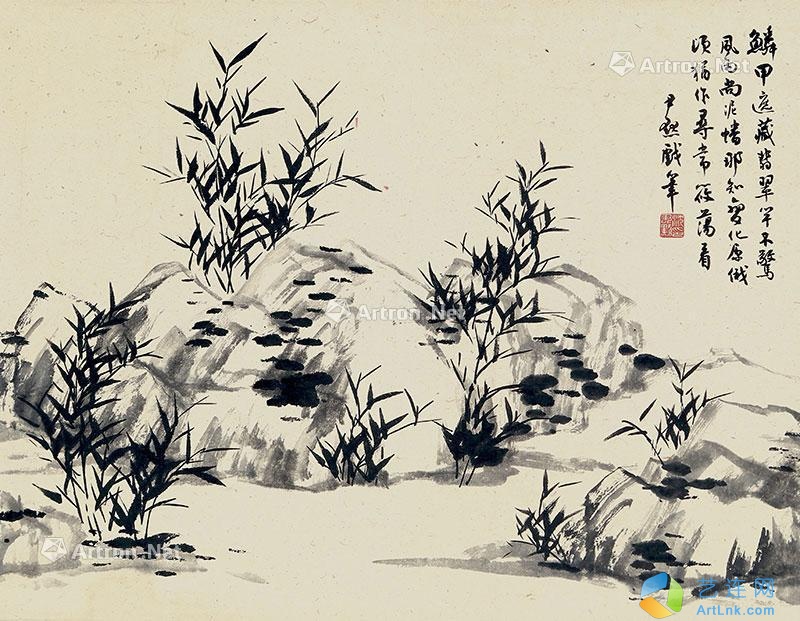 鱗甲遥藏翡翠竿不驚
風雨尚泥蟠那知變化原俄
頃猶作尋常筱蕩看
尹默戲筆
Artron.Net
Artron.Net
Artron.Net
艺连网
ArtLnk.com